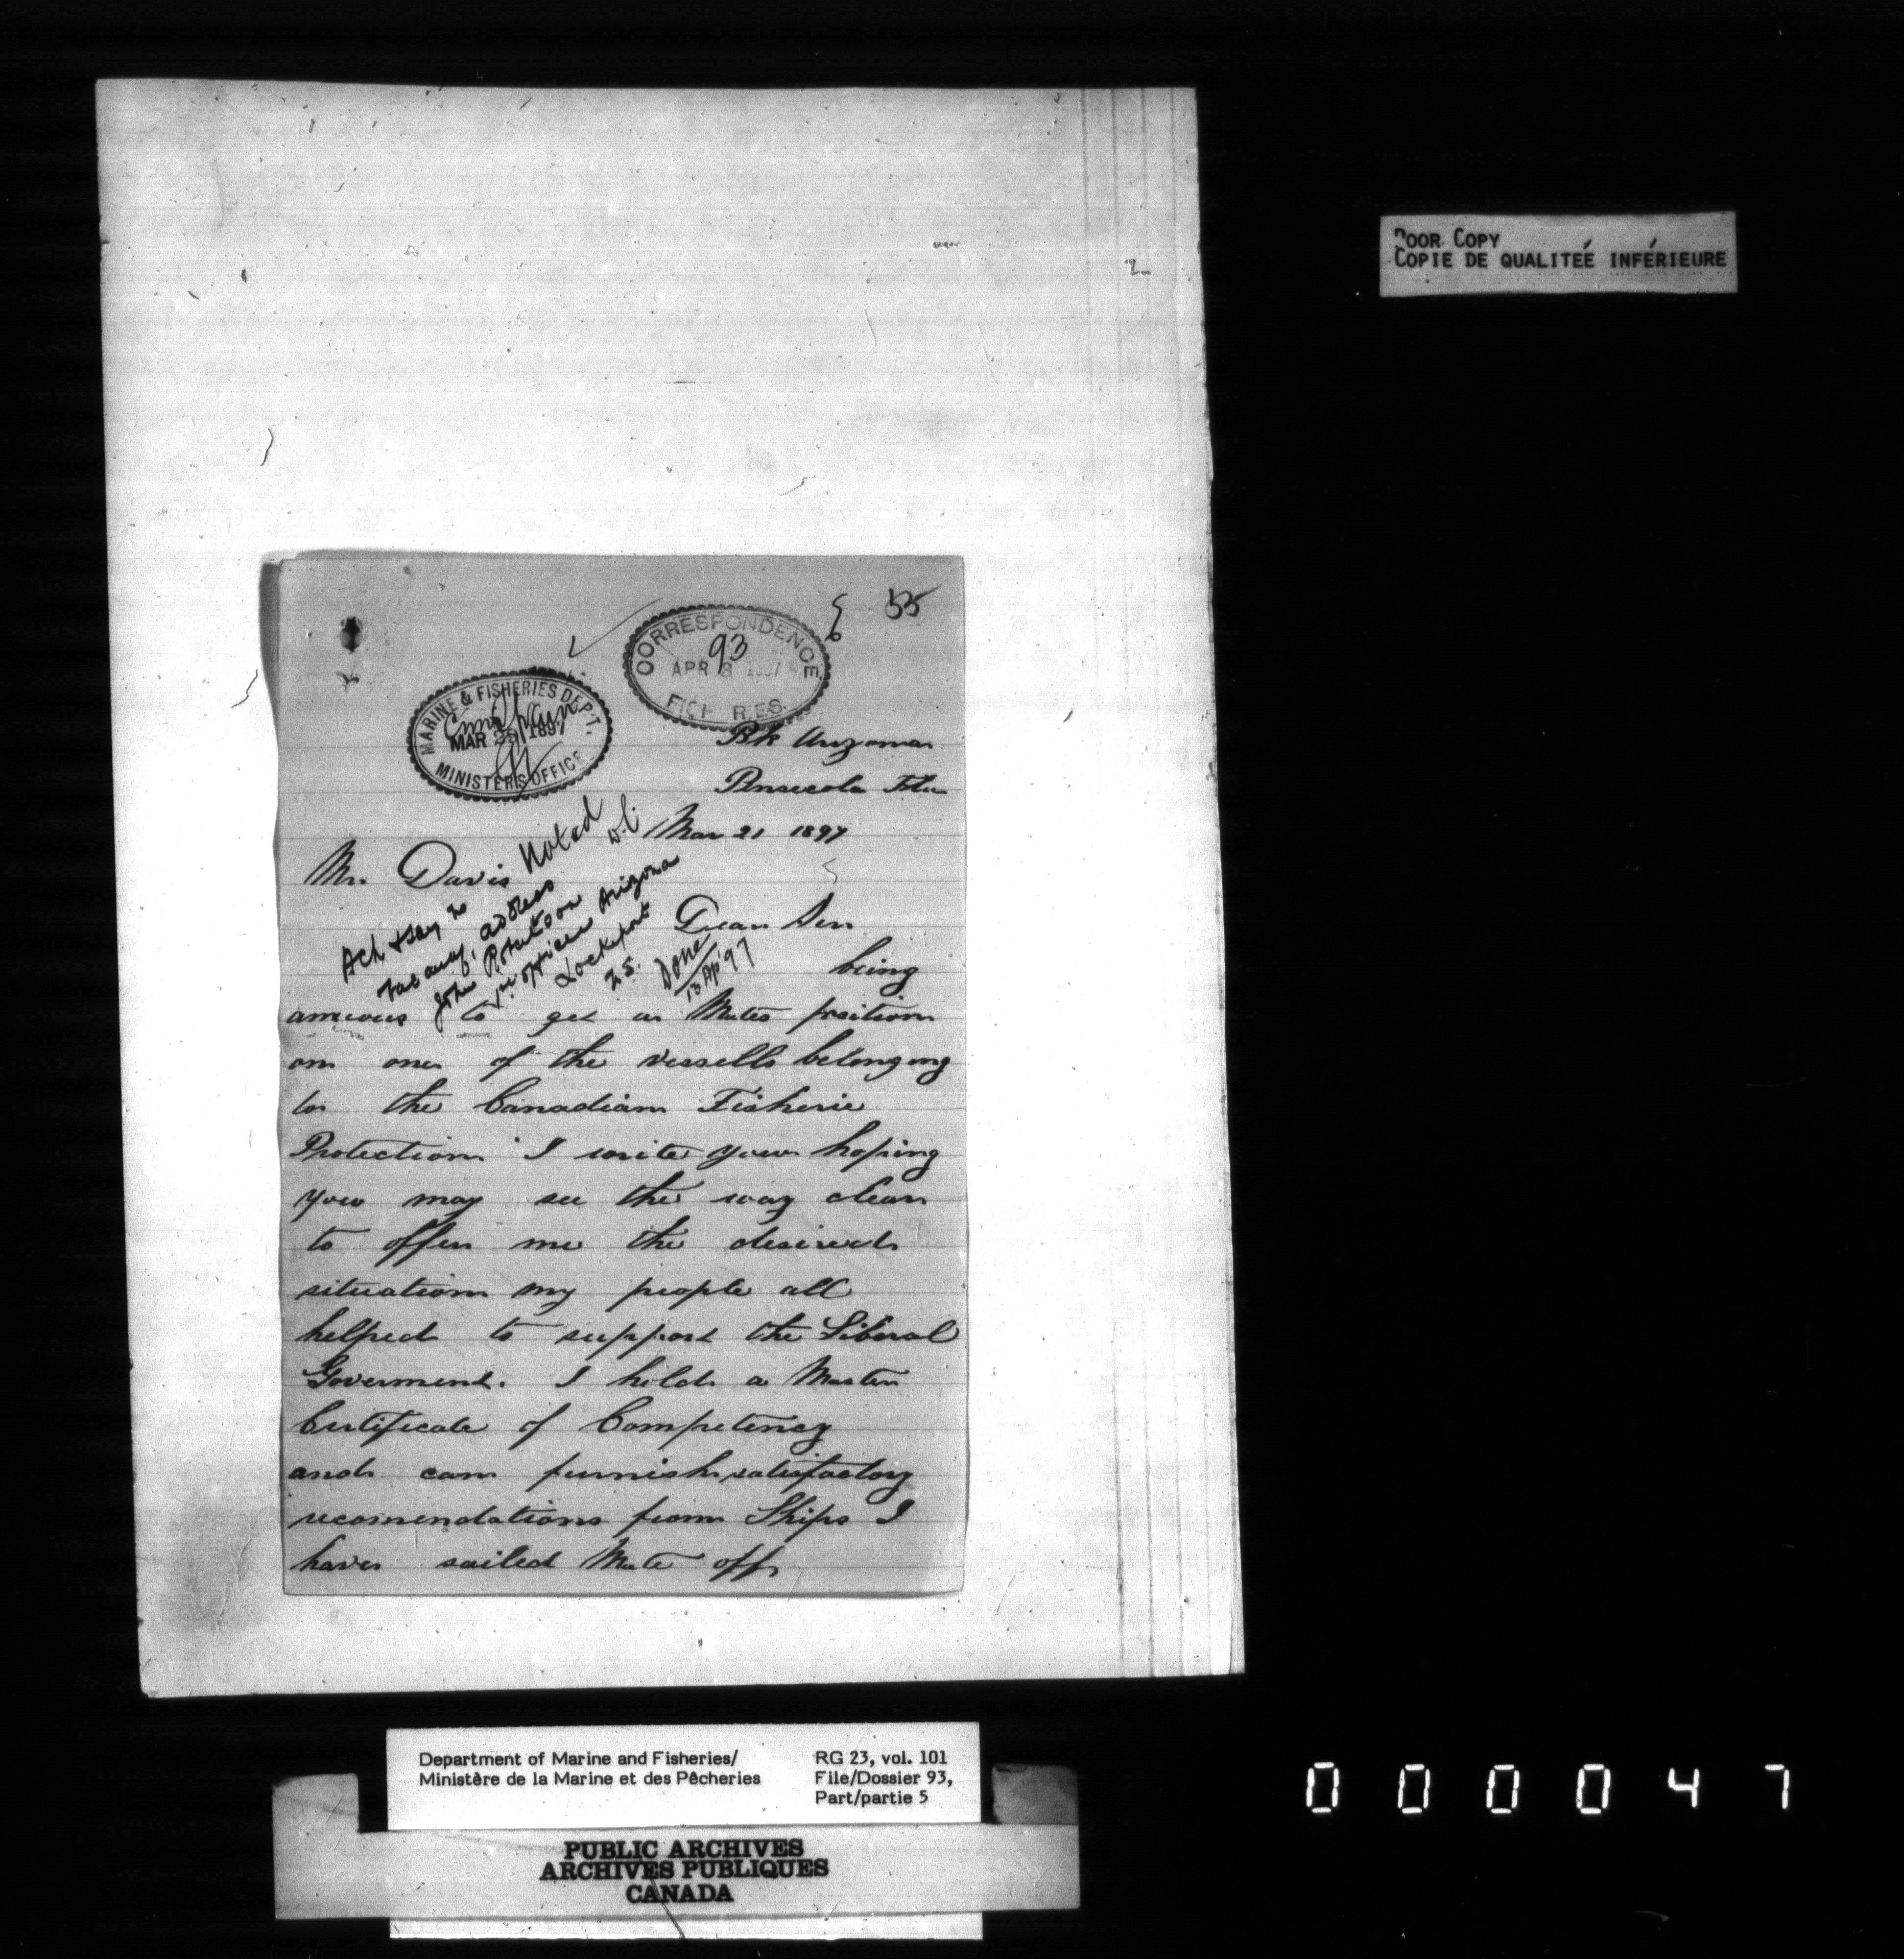 POOR COPY
COPIE DE QUALITEÉ INFÉRIEURE
55
CORRESPONDENCE
93
APR 8 1897
FISHERIES
MARINE & FISHERIES DEP'T.
MAR 25 1897
MINISTERS OFFICE
Bk Arizona
Pensecola Fla
Mar 21 1897
Mr. Davis
Noted
Ack & say no
vacancy, address
John
1st officer Arizona
Lockeport
N.S.
Done
13 Ap '97
Dear Sir
being
anxious to get a Mates position
on one of the vessells belonging
to the Canadian Fisherie
Protection I write you hoping
you may see the way clear
to offer me the desired
situation my people all
helped to support the Liberal
Goverment. I hold a Master
Certificate of Competency
and can furnish satisfactory
recomendations from Ships I
have sailed Mate off
Department of Marine and Fisheries/
Ministère de la Marine et des Pêcheries
RG 23, vol. 101
File/Dossier 93,
Part/partie 5
PUBLIC ARCHIVES
ARCHIVES PUBLIQUES
CANADA
000047